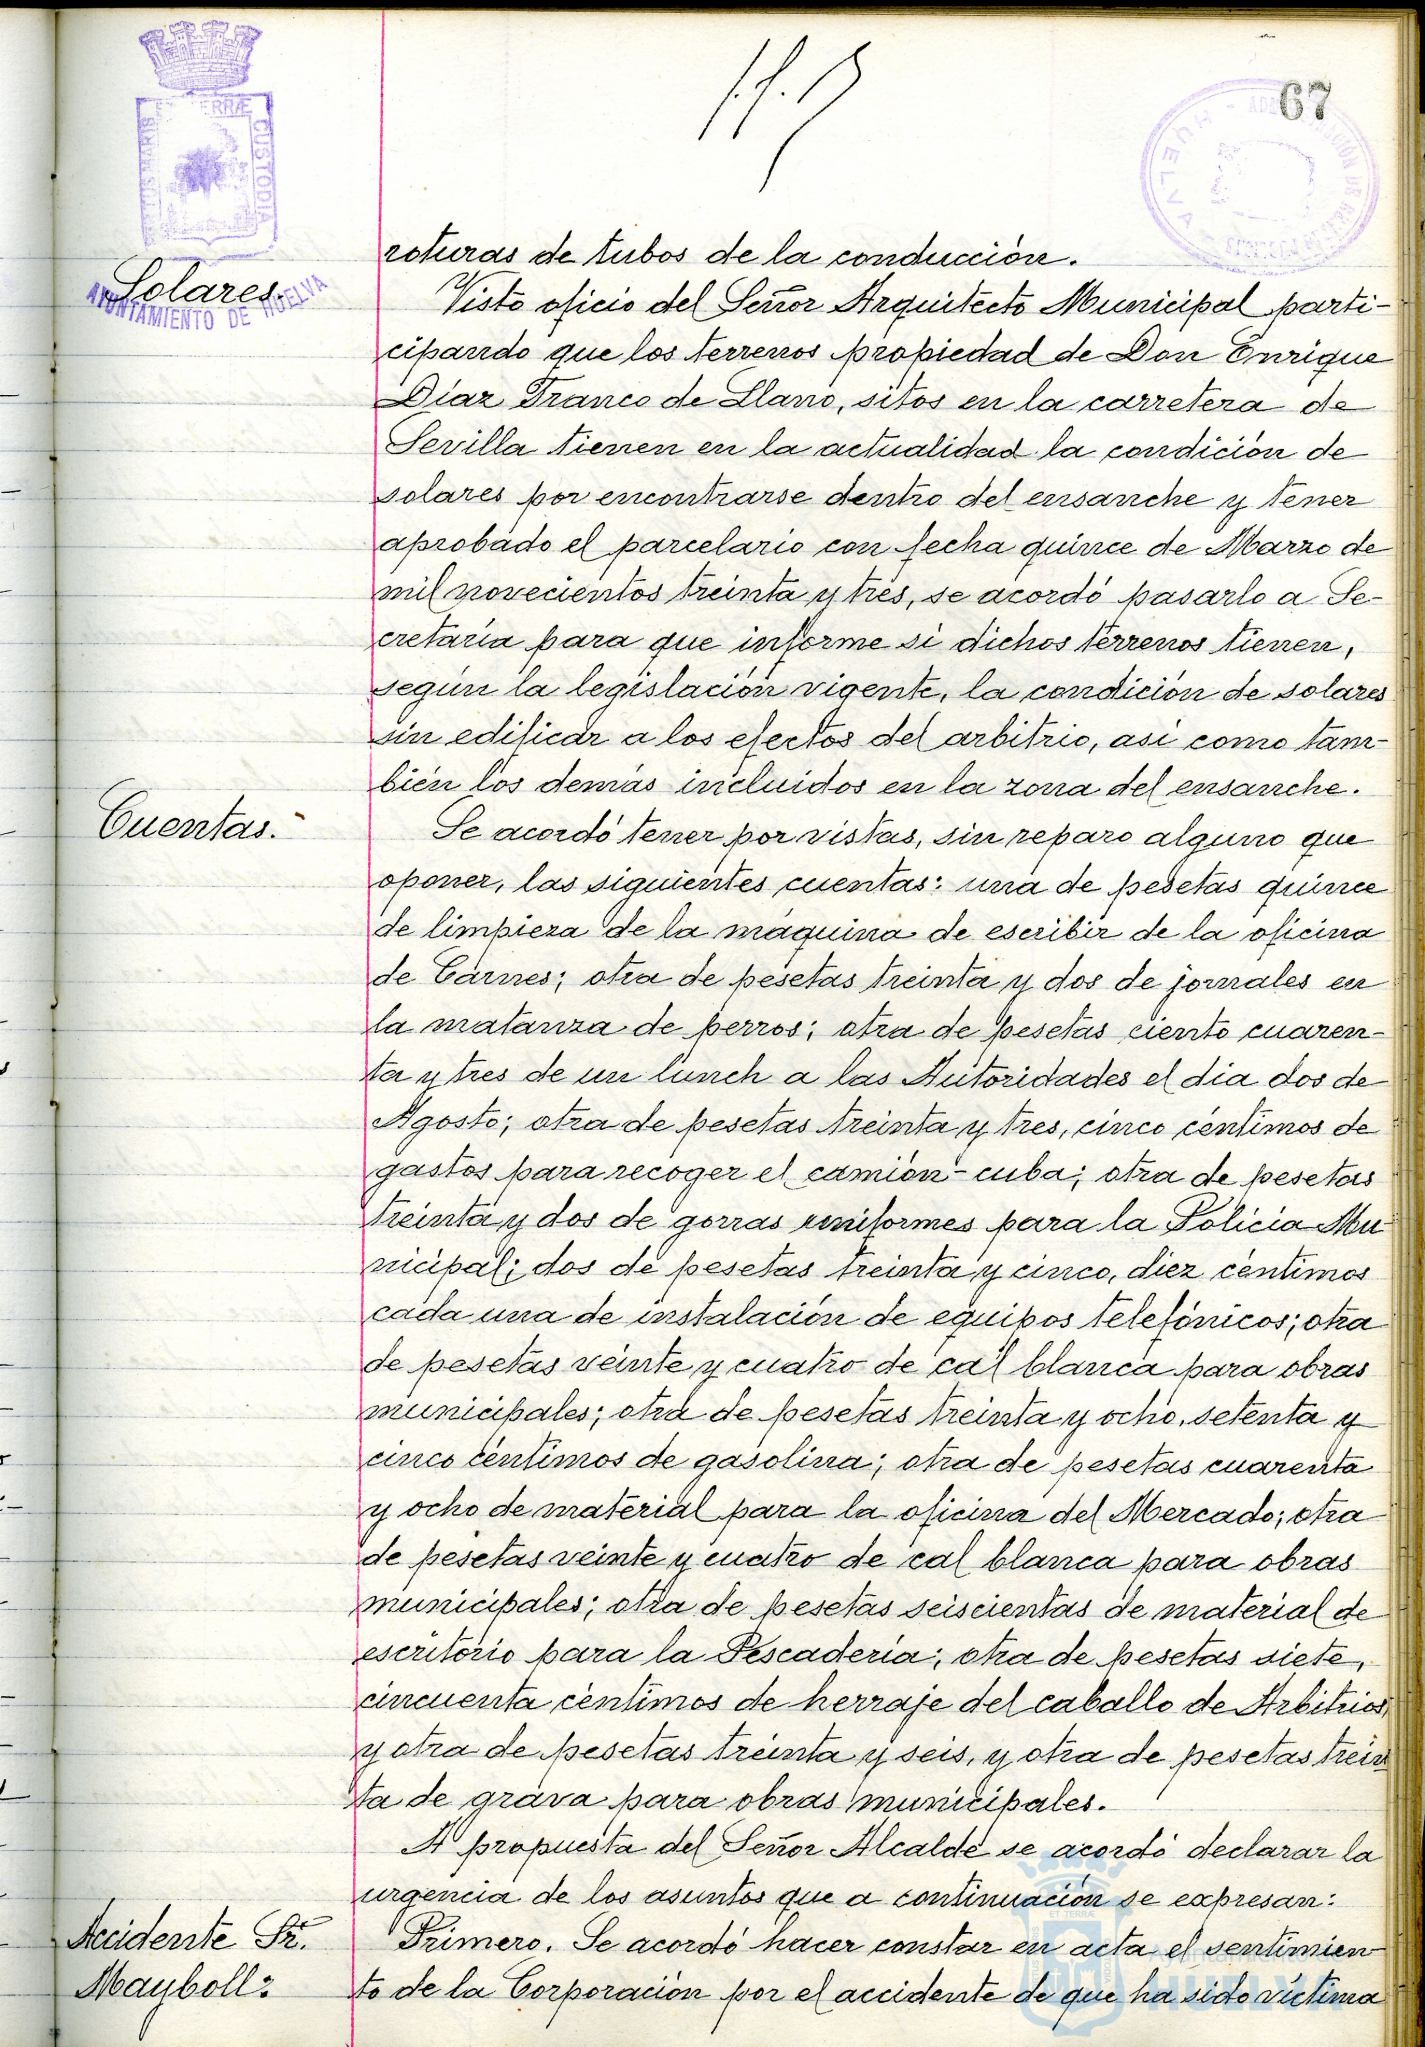 67
roturas de tubos de la conducción.
Solares.
AYUNTAMIENTO DE HUELVA
CUSTODIA
Visto oficio del Señor Arquitecto Municipal parti-
cipando que los terrenos propiedad de Don Enrique
Díaz Franco de Llano, sitos en la carretera de
Sevilla tienen en la actualidad la condición de
solares por encontrarse dentro del ensanche y tener
aprobado el parcelario con fecha quince de Marzo de
mil novecientos treinta y tres, se acordó pasarlo a Se-
cretaría para que informe si dichos terrenos tienen,
según la legislación vigente, la condición de solares
sin edificar a los efectos del arbitrio, así como tam-
bién los demás incluidos en la zona del ensanche.
Cuentas.
Se acordó tener por vistas, sin reparo alguno que
oponer, las siguientes cuentas: una de pesetas quince
de limpieza de la máquina de escribir de la oficina
de Carnes; otra de pesetas treinta y dos de jornales en
la matanza de perros; otra de pesetas ciento cuaren-
ta y tres de un lunch a las Autoridades el día dos de
Agosto; otra de pesetas treinta y tres, cinco céntimos de
gastos para recoger el camión-cuba; otra de pesetas
treinta y dos de gorras uniformes para la Policía Mu
nicipal; dos de pesetas treinta y cinco, diez céntimos
cada una de instalación de equipos telefónicos; otra
de pesetas veinte y cuatro de cal blanca para obras
municipales; otra de pesetas treinta y ocho, setenta y
cinco céntimos de gasolina; otra de pesetas cuarenta
y ocho de material para la oficina del Mercado; otra
de pesetas veinte y cuatro de cal blanca para obras
municipales; otra de pesetas seiscientas de material de
escritorio para la Pescadería; otra de pesetas siete,
cincuenta céntimos de herraje del caballo de Arbitrios,
y otra de pesetas treinta y seis, y otra de pesetas trein
ta de grava para obras municipales.
A propuesta del Señor Alcalde se acordó declarar la
urgencia de los asuntos que a continuación se expresan:
Accidente Sr.
Mayboll:
Primero. Se acordó hacer constar en acta el sentimien
to de la Corporación por el accidente de que ha sido víctima